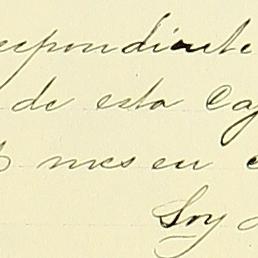 espondiente
de esta Cap
mes en
Soy